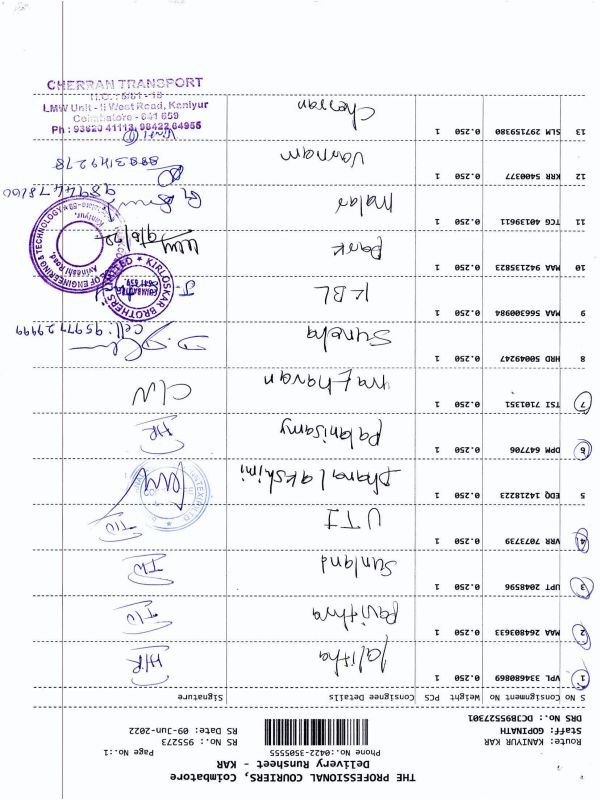 THE PROFESSIONAL COURIERS, Coimbatore
Delivery Runsheet - KAR
Phone No:0422-3505555
Page No.:1
Route: KANIYUR KAR
RS No.: 955273
Staff: GOPINATH
RS Date: 09-Jun-2022
DRS No.: DCJB95527301
S No Consignment No Weight PCS Consignee Details Signature
1 VPL 334680869 0.250 1 Lalitha H/R
2 MAA 26483633 0.250 1 Pavithra
3 UPT 2048596 0.250 1 Sunland
4 VRR 7073739 0.250 1 UTI
5 EDQ 14218223 0.250 1 Dhanalakshimi
6 DPM 647706 0.250 1 Palanisamy HR
7 TSI 7101351 0.250 1 Mathavan
8 HRD 50049247 0.250 1 Suneha
Cell: 9597729999
9 MAA 563300984 0.250 1 KBL
KIRLOSKAR BROTHERS LIMITED
COIMBATORE
641 659
10 MAA 942135823 0.250 1 Park
9/6/22
OF ENGINEERING & TECHNOLOGY
Avinashi Road,
Kaniyur,
11 TCG 40139611 0.250 1 Malar
9894478100
12 KRR 5400377 0.250 1 Varnam
8883149278
13 SLM 297159380 0.250 1 Cherran
CHERRAN TRANSPORT
LMW Unit - II West Road, Kaniyur
Coimbatore - 641 659
Ph : 93620 41113, 98422 64955